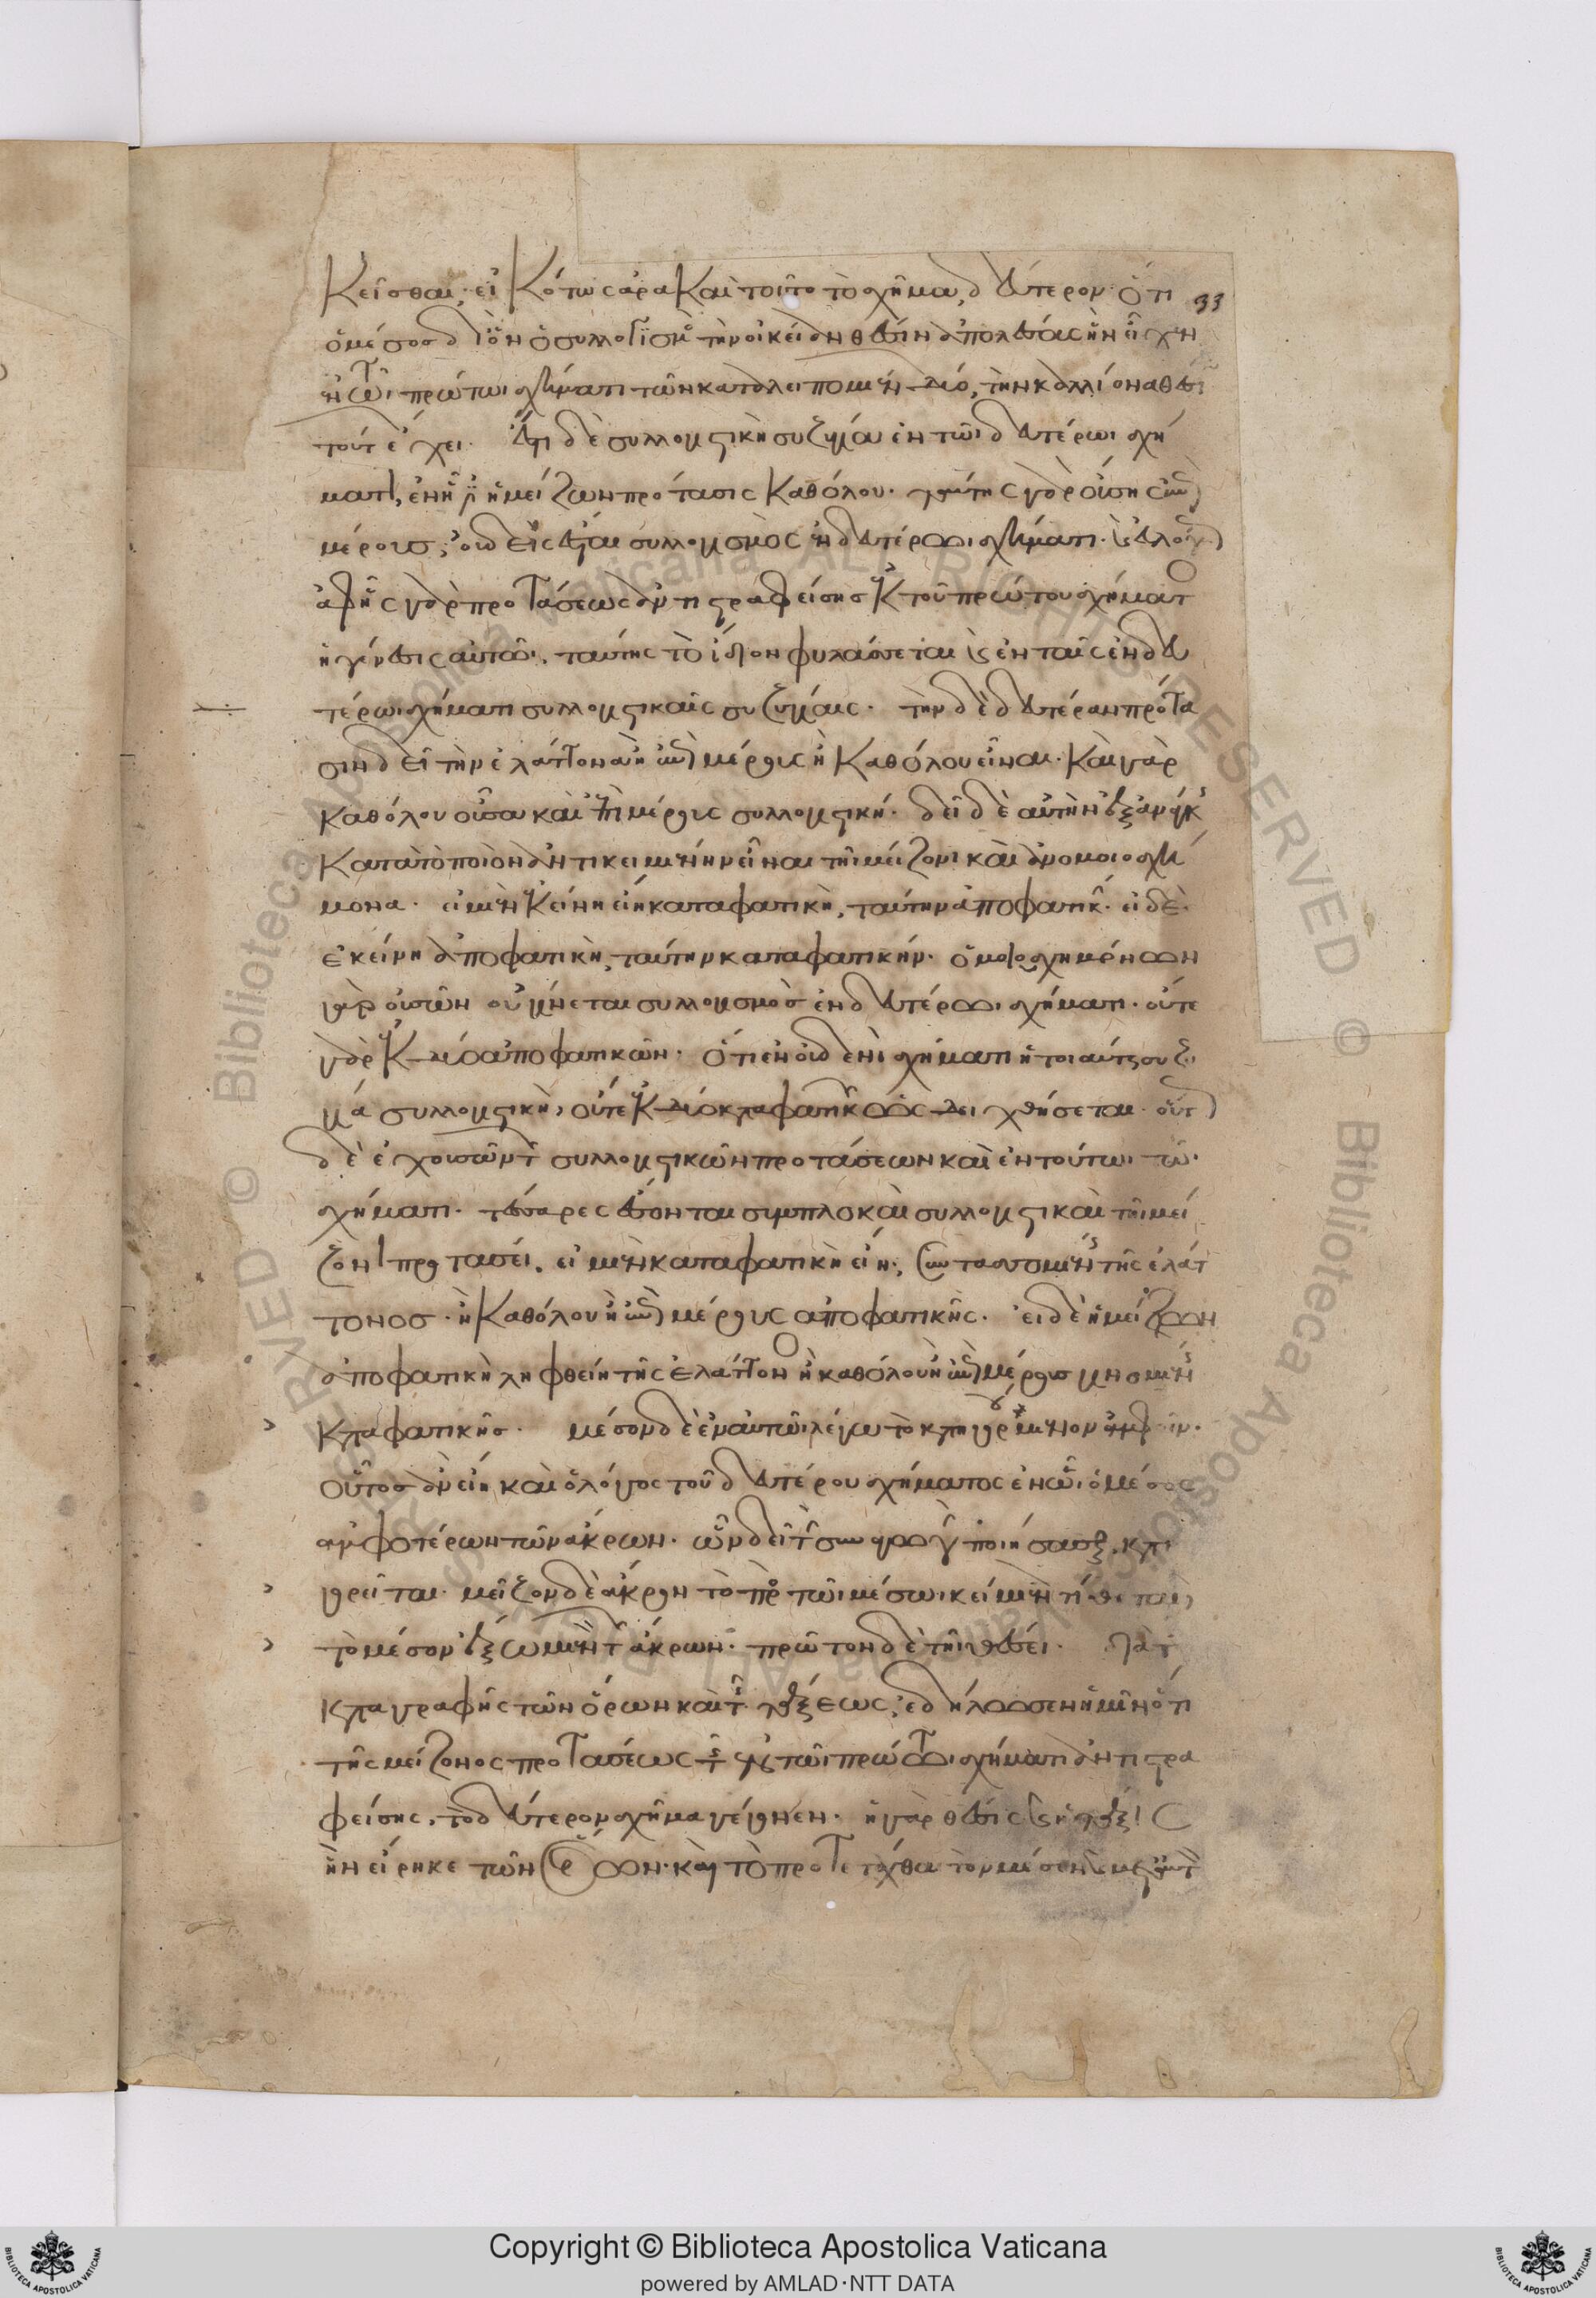 κεῖσθαι· εἰκότως ἄρα καὶ τοῦτο τὸ σχῆμα δεύτερον· ὅτι 33
ὁ μέσος δι' ὃν ὁ συλλογισμὸς τὴν οἰκείαν θέσιν ἀπολέσας ἣν εἶχεν
ἐν τῶι πρώτωι σχήματι τῶν καταλειπομένων δύο, τὴν καλλίονα θέσιν
τοῦτ' ἔχει. ἔστι δὲ συλλογιστικὴ συζυγία ἐν τῶι δευτέρωι σχή
ματι, ἐν ἧι ἡ μείζων πρότασις καθόλου. ταύτης γὰρ οὔσης ἐπὶ
μέρους, οὐδεὶς ἔσται συλλογισμὸς ἐν δευτέρωι σχήματι. καὶ εὐλόγως
ἀφ' ἧς γὰρ προτάσεως ἀντιστραφείσης ἐκ τοῦ πρώτου σχήματος
ἡ γένεσις αὐτῶι, ταύτης τὸ ἴδιον φυλάσσεται καὶ ἐν ταῖς ἐν δευ
τέρωι σχήματι συλλογιστικαῖς συζυγίαις. τὴν δὲ δευτέραν πρότα
σιν δεῖ τὴν ἐλάττονα ἢ ἐπὶ μέρους ἢ καθόλου εἶναι. καὶ γὰρ
καθόλου οὖσα καὶ ἐπὶ μέρους συλλογιστική. δεῖ δὲ αὐτὴν ἐξ ἀνάγκης
κατὰ τὸ ποιὸν ἀντικειμένην εἶναι τῆι μείζονι καὶ ἀνομοιοσχή
μονα. εἰ μὲν ἐκείνη εἴη καταφατικὴ, ταύτην ἀποφατικήν. εἰ δὲ
ἐκείνη ἀποφατικὴ, ταύτην καταφατικήν. ὁμοιοσχημόνων
γὰρ οὐσῶν οὐ γίνεται συλλογισμὸς ἐν δευτέρωι σχήματι. οὔτε
γὰρ ἐκ δύο ἀποφατικῶν. ὅτι ἐν οὐδενὶ σχήματι ἡ τοιαύτη συζυ
γία συλλογιστικὴ, οὔτε ἐκ δύο καταφατικῶν ὡς δειχθήσεται. οὕτω
δὲ ἐχουσῶν τῶν συλλογιστικῶν προτάσεων καὶ ἐν τούτωι τῶι
σχήματι. τέσσαρες ἔσονται συμπλοκαὶ συλλογιστικαὶ τῆι μεί
ζονι προτάσει. εἰ μὲν καταφατικὴ εἴη, συντασσομένης τῆς ἐλάτ
τονος. ἢ καθόλου ἢ ἐπὶ μέρους ἀποφατικῆς. εἰ δὲ ἡ μείζων
ἀποφατικὴ ληφθείη τῆς ἐλάττονος ἢ καθόλου ἢ ἐπὶ μέρους γινομένης
καταφατικῆς. μέσον δὲ ἐν αὐτῶι λέγω τὸ κατηγορούμενον ἀμφοῖν.
οὗτος ἂν εἴη καὶ ὁ λόγος τοῦ δευτέρου σχήματος ἐν ὧι ὁ μέσος
ἀμφοτέρων τῶν ἄκρων. ὧν δεῖ τὴν συναγωγὴν ποιήσασθαι, κατη
γορεῖται. μεῖζον δὲ ἄκρον τὸ πρὸς τῶι μέσωι κείμενον τίθεται
τὸ μέσον ἔξω μὲν τῶν ἄκρων. πρῶτον δὲ τῆι θέσει. διὰ τῆς
καταγραφῆς τῶν ὅρων καὶ τῆς τάξεως, ἐδήλωσεν ἡμῖν ὅτι
τῆς μείζονος προτάσεως τῆς ἐν τῶι πρώτωι σχήματι ἀντιστρα
φείσης, τὸ δεύτερον σχῆμα γέγονεν. ἡ γὰρ θέσις καὶ ἡ τάξις
ἣν εἴρηκε τῶν ὅρων. καὶ τὸ προτετάχθαι τὸν μέσον